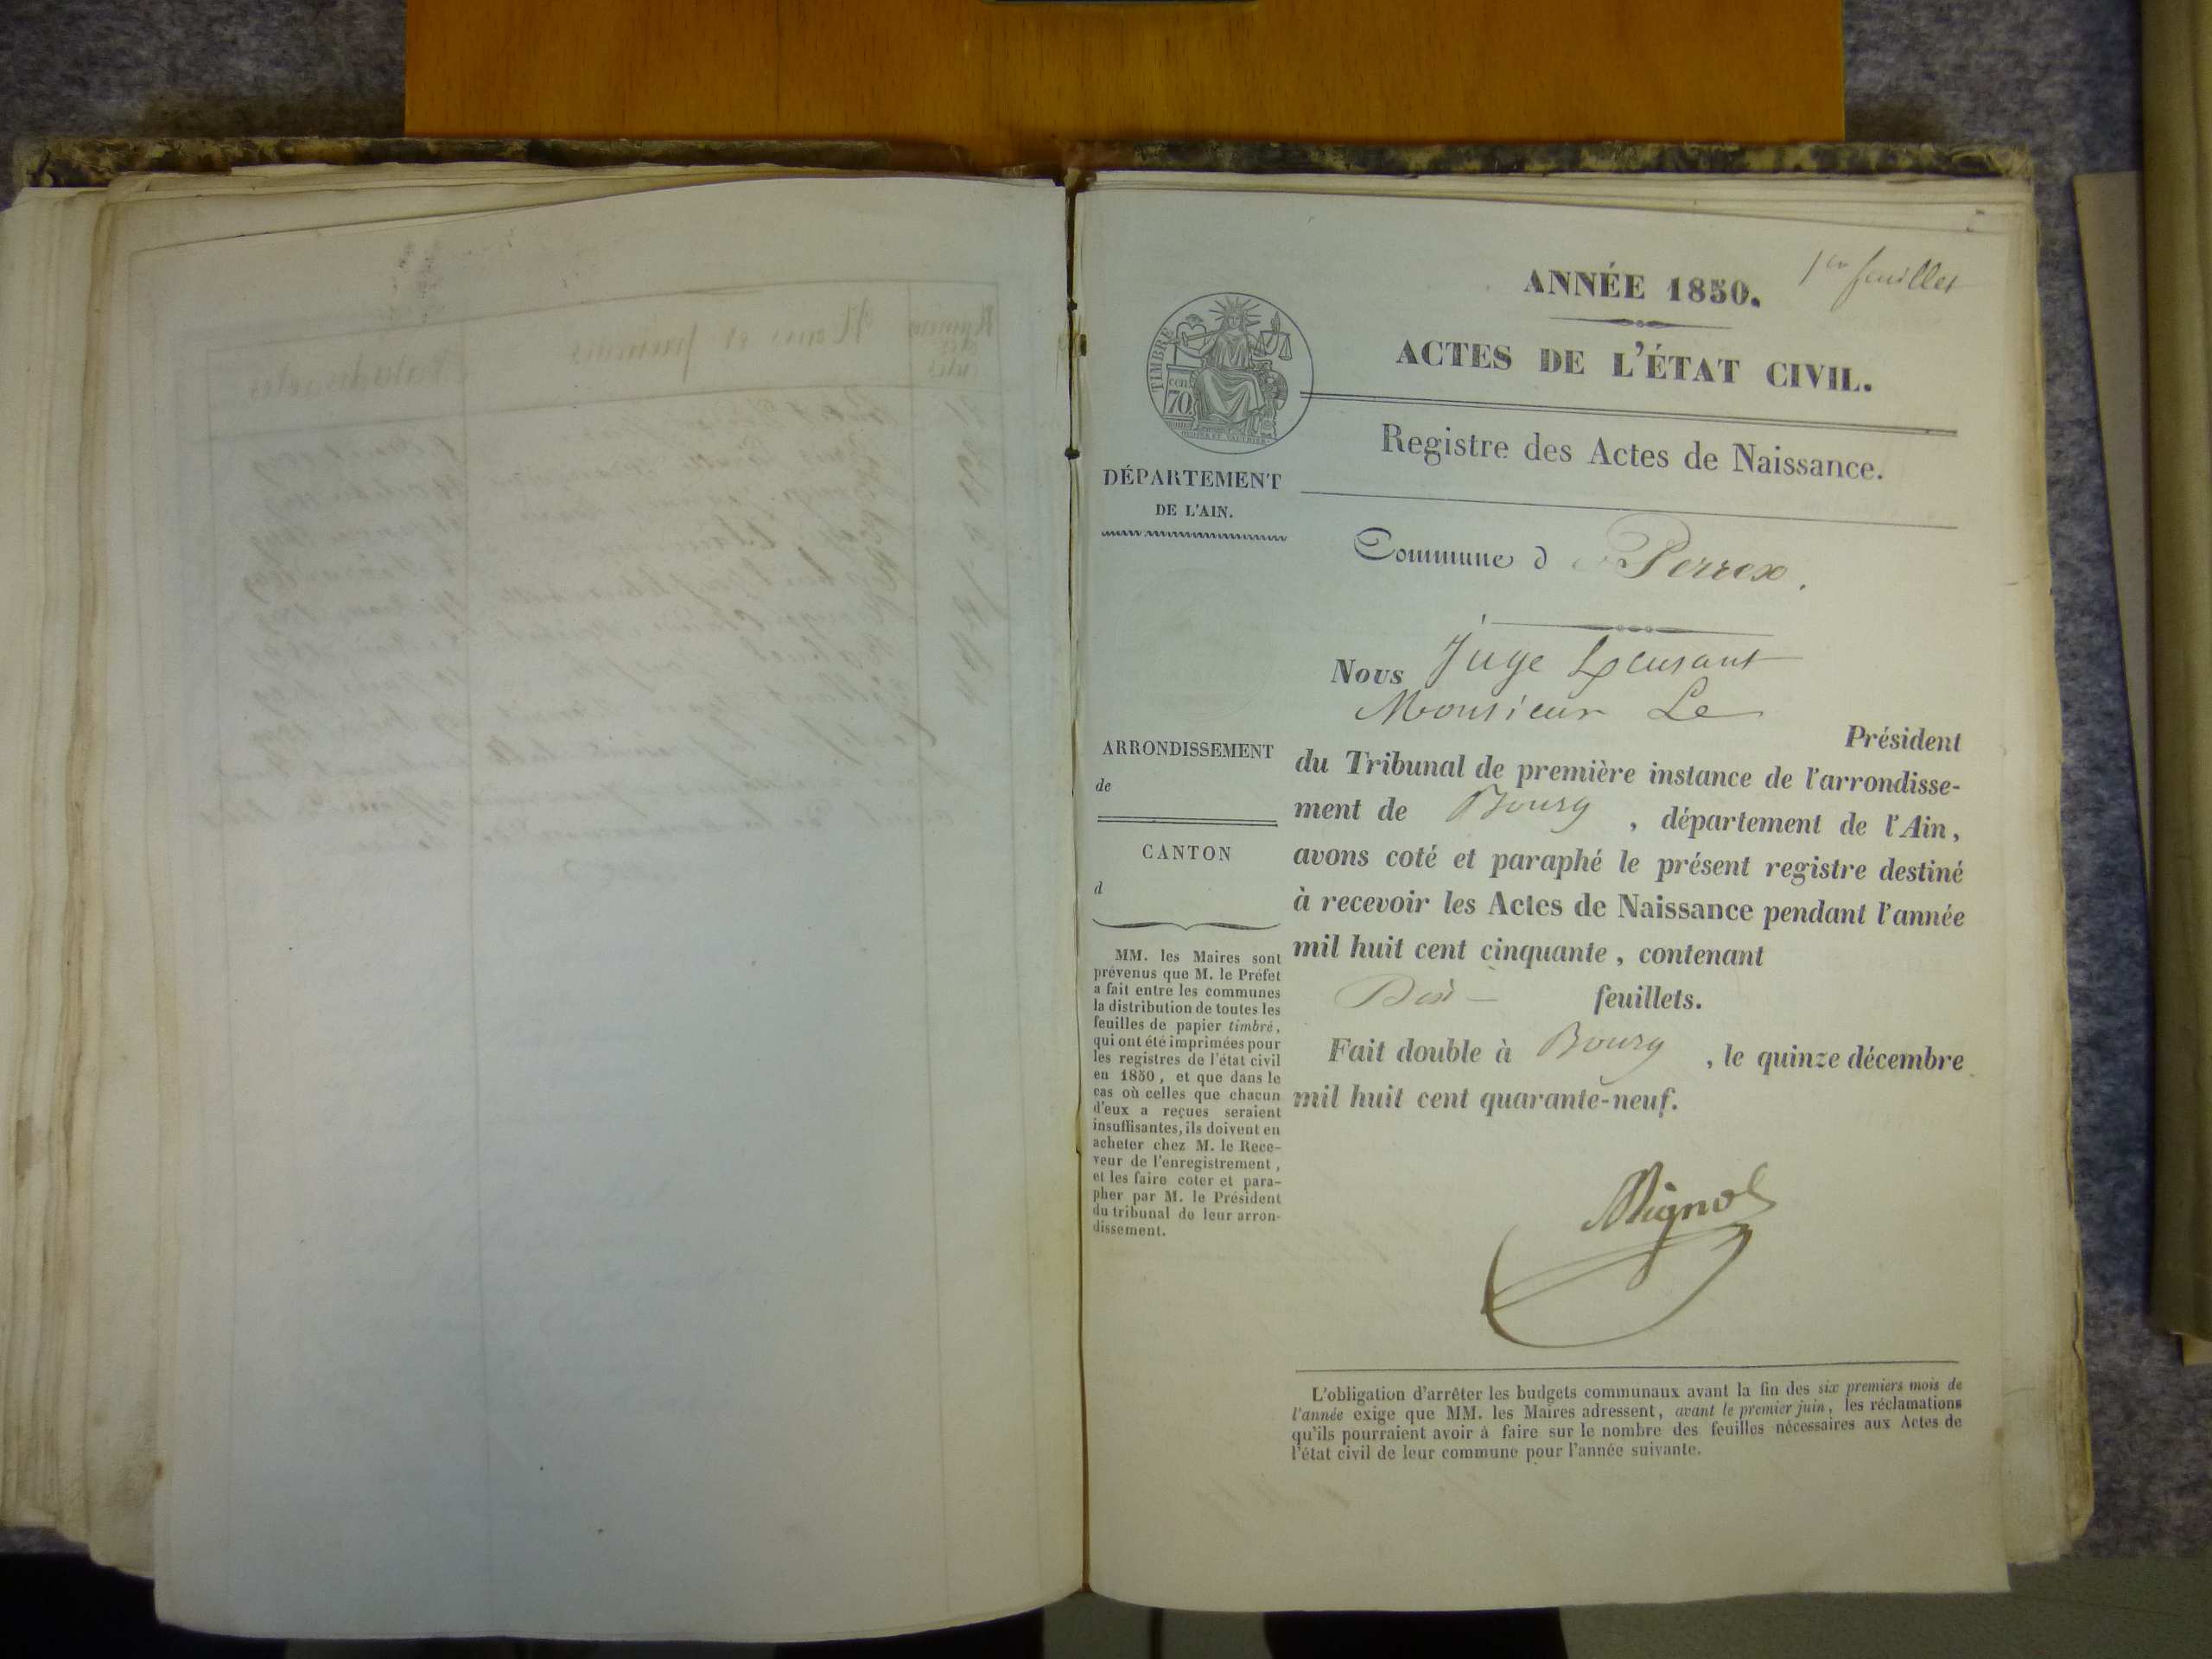 1er feuillet
ANNÉE 1850.
ACTES DE L'ÉTAT CIVIL.
Registre des Actes de Naissance.
TIMBRE
cen
70
DÉPARTEMENT
DE L'AIN.
Commune de Perrex.
Nous Juge
Monsieur Le
Président
du Tribunal de première instance de l'arrondisse-
ment de Bourg, département de l'Ain,
avons coté et paraphé le présent registre destiné
à recevoir les Actes de Naissance pendant l'année
mil huit cent cinquante, contenant
Dix feuillets.
Fait double à Bourg, le quinze décembre
mil huit cent quarante-neuf.
ARRONDISSEMENT
de
CANTON
d
MM. les Maires sont
prévenus que M. le Préfet
a fait entre les communes
la distribution de toutes les
feuilles de papier timbré,
qui ont été imprimées pour
les registres de l'état civil
en 1850, et que dans le
cas où celles que chacun
d'eux a reçues seraient
insuffisantes, ils doivent en
acheter chez M. le Rece-
veur de l'enregistrement,
et les faire coter et para-
pher par M. le Président
du tribunal de leur arron-
dissement.
L'obligation d'arrêter les budgets communaux avant la fin des six premiers mois de
l'année exige que MM. les Maires adressent, avant le premier juin, les réclamations
qu'ils pourraient avoir à faire sur le nombre des feuilles nécessaires aux Actes de
l'état civil de leur commune pour l'année suivante.